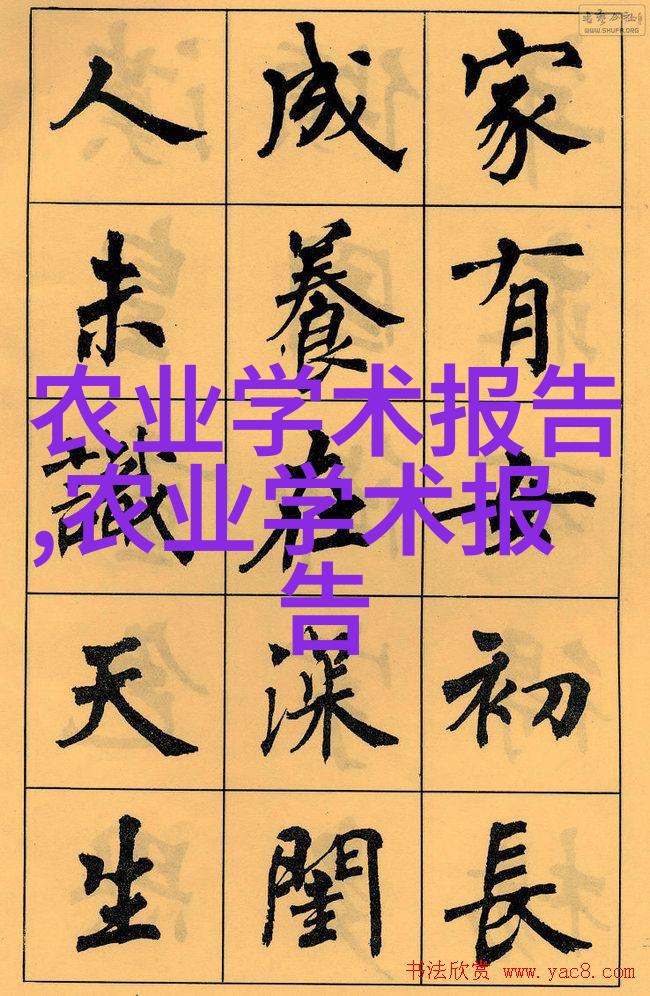 WWW.SHUFA.ORG
家有女初長
成養在深閨
人未識天生
农业学术报告
,农业学术报
告
书法欣赏 www.yac8.com